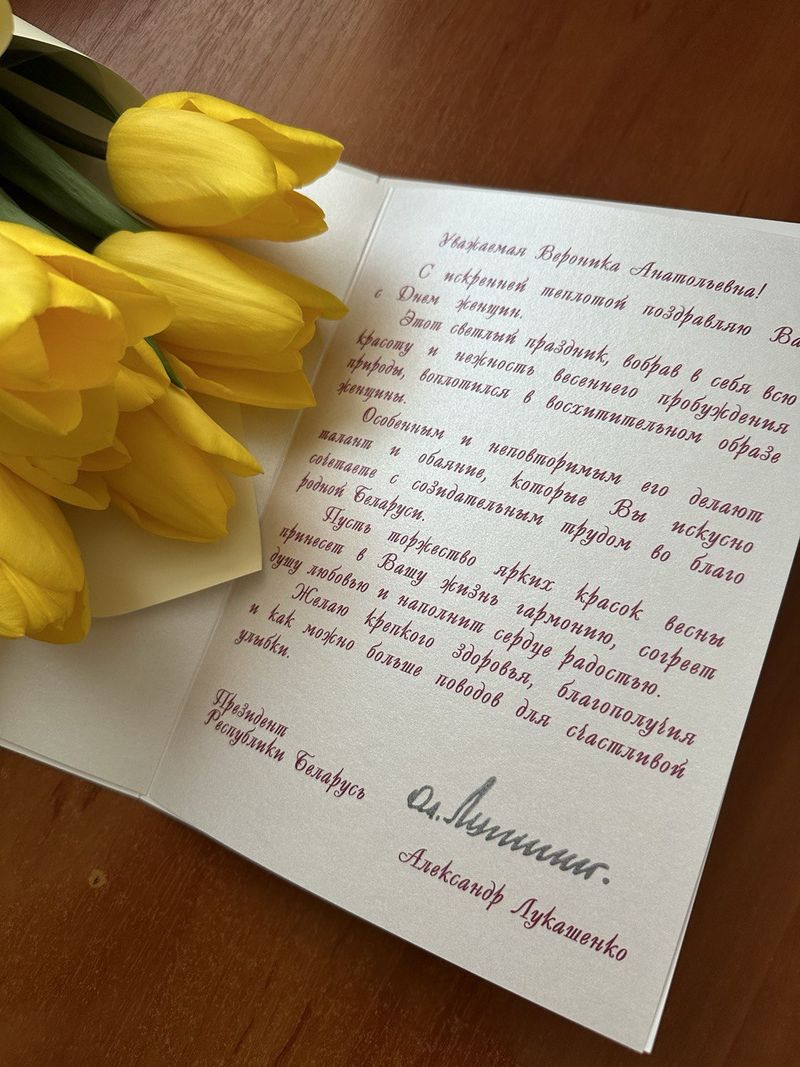 Уважаемая Вероника Анатольевна!
С искренней теплотой поздравляю Ва
с Днем женщин.
Этот светлый праздник, вобрав в себя всю
красоту и нежность весеннего пробуждения
природы, воплотился в восхитительном образе
женщины.
Особенным и неповторимым его делают
талант и обаяние, которые Вы искусно
сочетаете с созидательным трудом во благо
родной Беларуси.
Пусть торжество ярких красок весны
принесет в Вашу жизнь гармонию, согреет
душу любовью и наполнит сердце радостью.
Желаю крепкого здоровья, благополучия
и как можно больше поводов для счастливой
улыбки.
Президент
Республики Беларусь
Александр Лукашенко